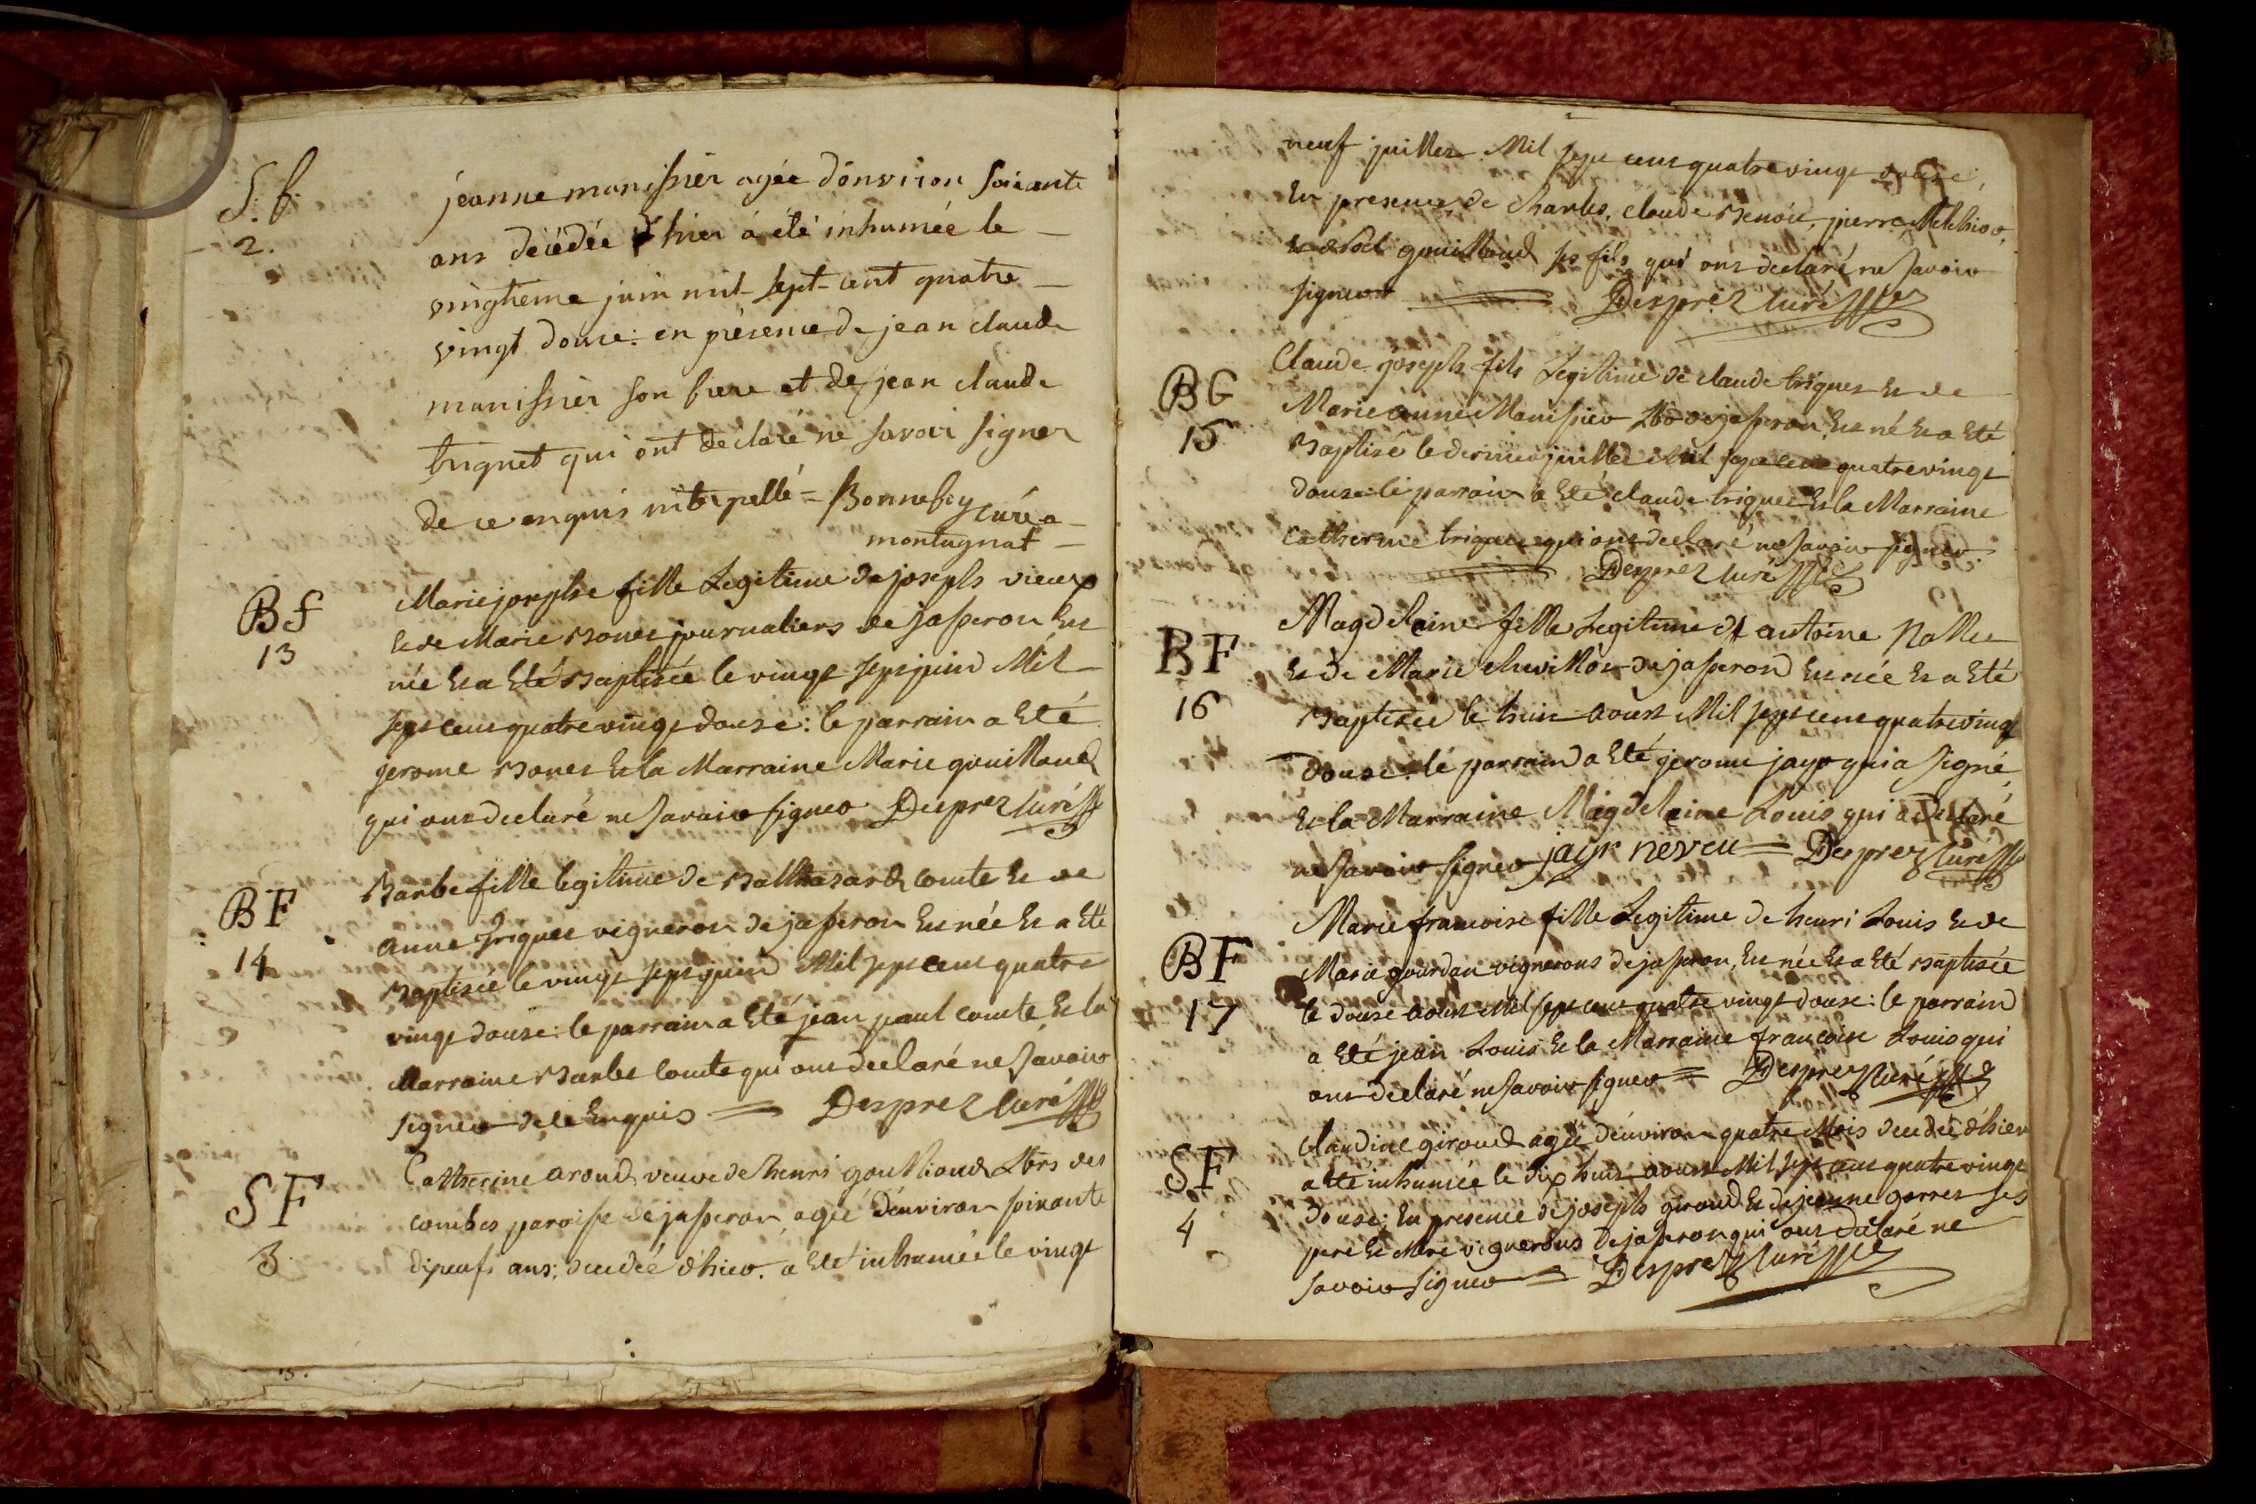 S. f.
2.
jeanne manissier agée d'environ soixante
ans décédée d'hier á été inhumée le
vingtieme juin mil sept cent quatre
vingt douze: en présence de jean claude
manissier son frere et de jean claude
triquet qui ont declaré ne savoir signer
de ce enquis interpellé = Bonnefoy curé a
montagnat
Bf
13
Marie josephe fille Legitime de joseph vieux
et de Marie Bonet journaliers de jasseron Est
née Et a Eté Baptisée le vingt sept juin Mil
sept cent quatre vingt douze: le parrain a Eté
jerome Bonet Et la Marraine Marie gouilloud
qui ont declaré ne savoir signer Desprez Curé
BF
14
Barbe fille legitime de Balthazard comte Et de
anne Triquet vigneron de jasseron Est née Et a Eté
Baptisée le vingt sept juin Mil sept cent quatre
vingt douze: le parrain a Eté jean paul comte Et la
Marraine Barbe Comte qui ont declaré ne savoir
signer de ce Enquis = Desprez Curé
SF
3
Catherine aroud veuve de henri gouilloud des
combes paroisse de jasseron agée d'environ soixante
dixneuf ans; decedée d'hier. a Eté inhumée le vingt
neuf juillet Mil sept cent quatre vingt douze,
En presence de Charles, claude Benoit, pierre Melchior,
gouilloud ses fils qui ont declaré ne savoir
signer = Desprez Curé
BG
15
Claude joseph fils Legitime de claude triquet Et de
Marie anne Manissier de jasseron, Est né Et a Eté
Baptisé le dernier juillet Mil sept cent quatre vingt
douze: le parrain a Eté claude triquet Et la Marraine
Catherine triquet qui ont declaré ne savoir signer.
Desprez Curé
BF
16
Magdelaine fille Legitime de antoine Nallet
Et de Marie chevillon de jasseron Est née Et a Eté
Baptisée le huit aoust Mil sept cent quatre vingt
Douze: le parrain a Eté jerome jayr qui a signé,
Et la Marraine Magdelaine Louis qui a declaré
ne savoir signer jayr neveu = Desprez Curé
BF
17
Marie francoise fille Legitime de henri Louis Et de
Marie gourdan vignerons de jasseron, Est née Et a Eté Baptisée
le douze aoust Mil sept cent quatre vingt douze: le parrain
a Eté jean Louis Et la Marraine francoise Louis qui
ont declaré ne savoir signer = Desprez Curé
SF
4
Claudine giroud agée d'environ quatre Mois decedée d'hier
a Eté inhumée le dix huit aoust Mil sept cent quatre vingt
Douze; En presence de joseph giroud Et de jeanne gorret ses
pere Et Mere vignerons de jasseron qui ont declaré ne
savoir signer = Desprez Curé